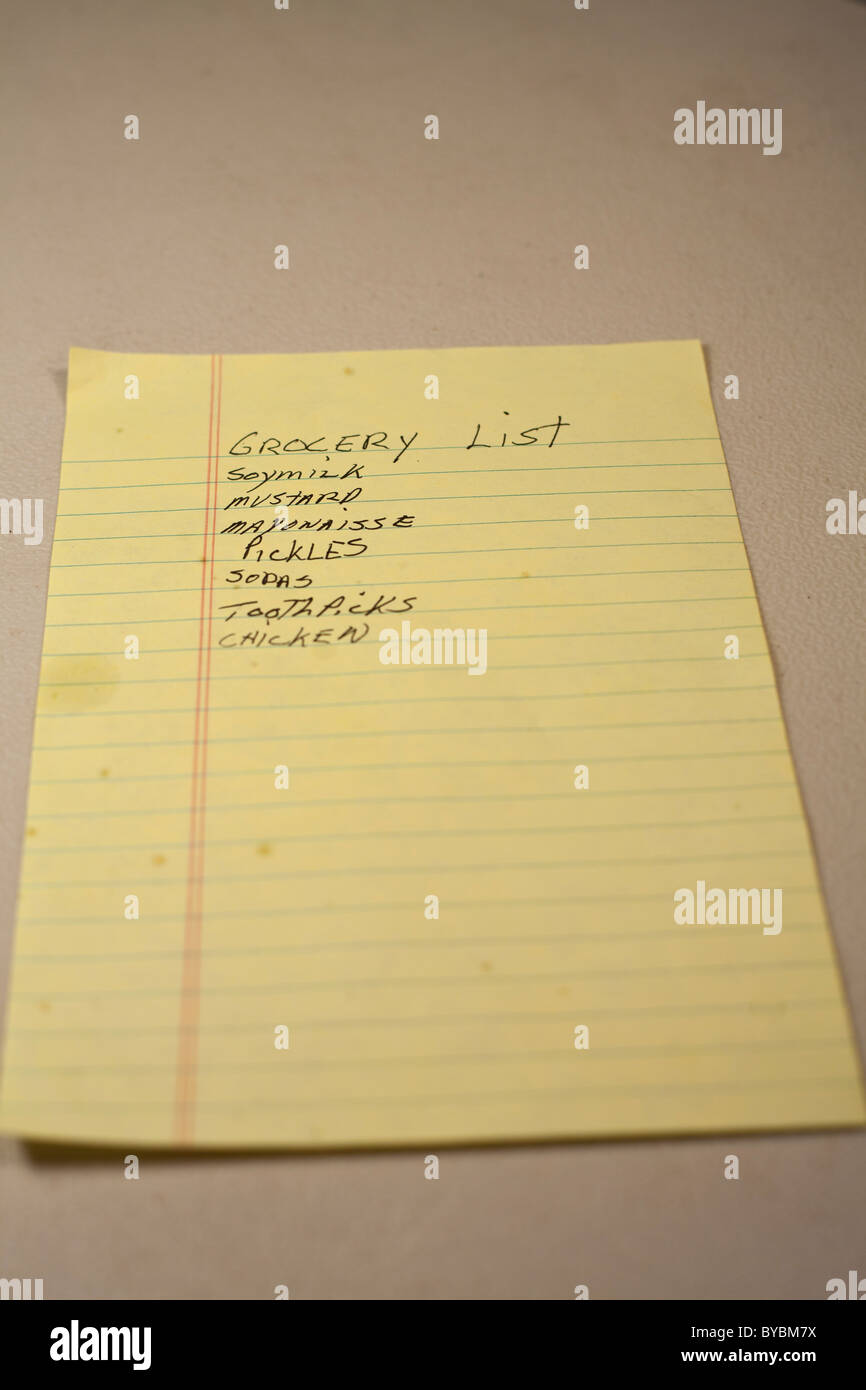 GROCERY List
SOYMILK
MUSTARD
MAYONAISSE
PICKLES
SODAS
TOOTHPICKS
CHICKEN
alamy
a
alamy
Image ID: BYBM7X
www.alamy.com